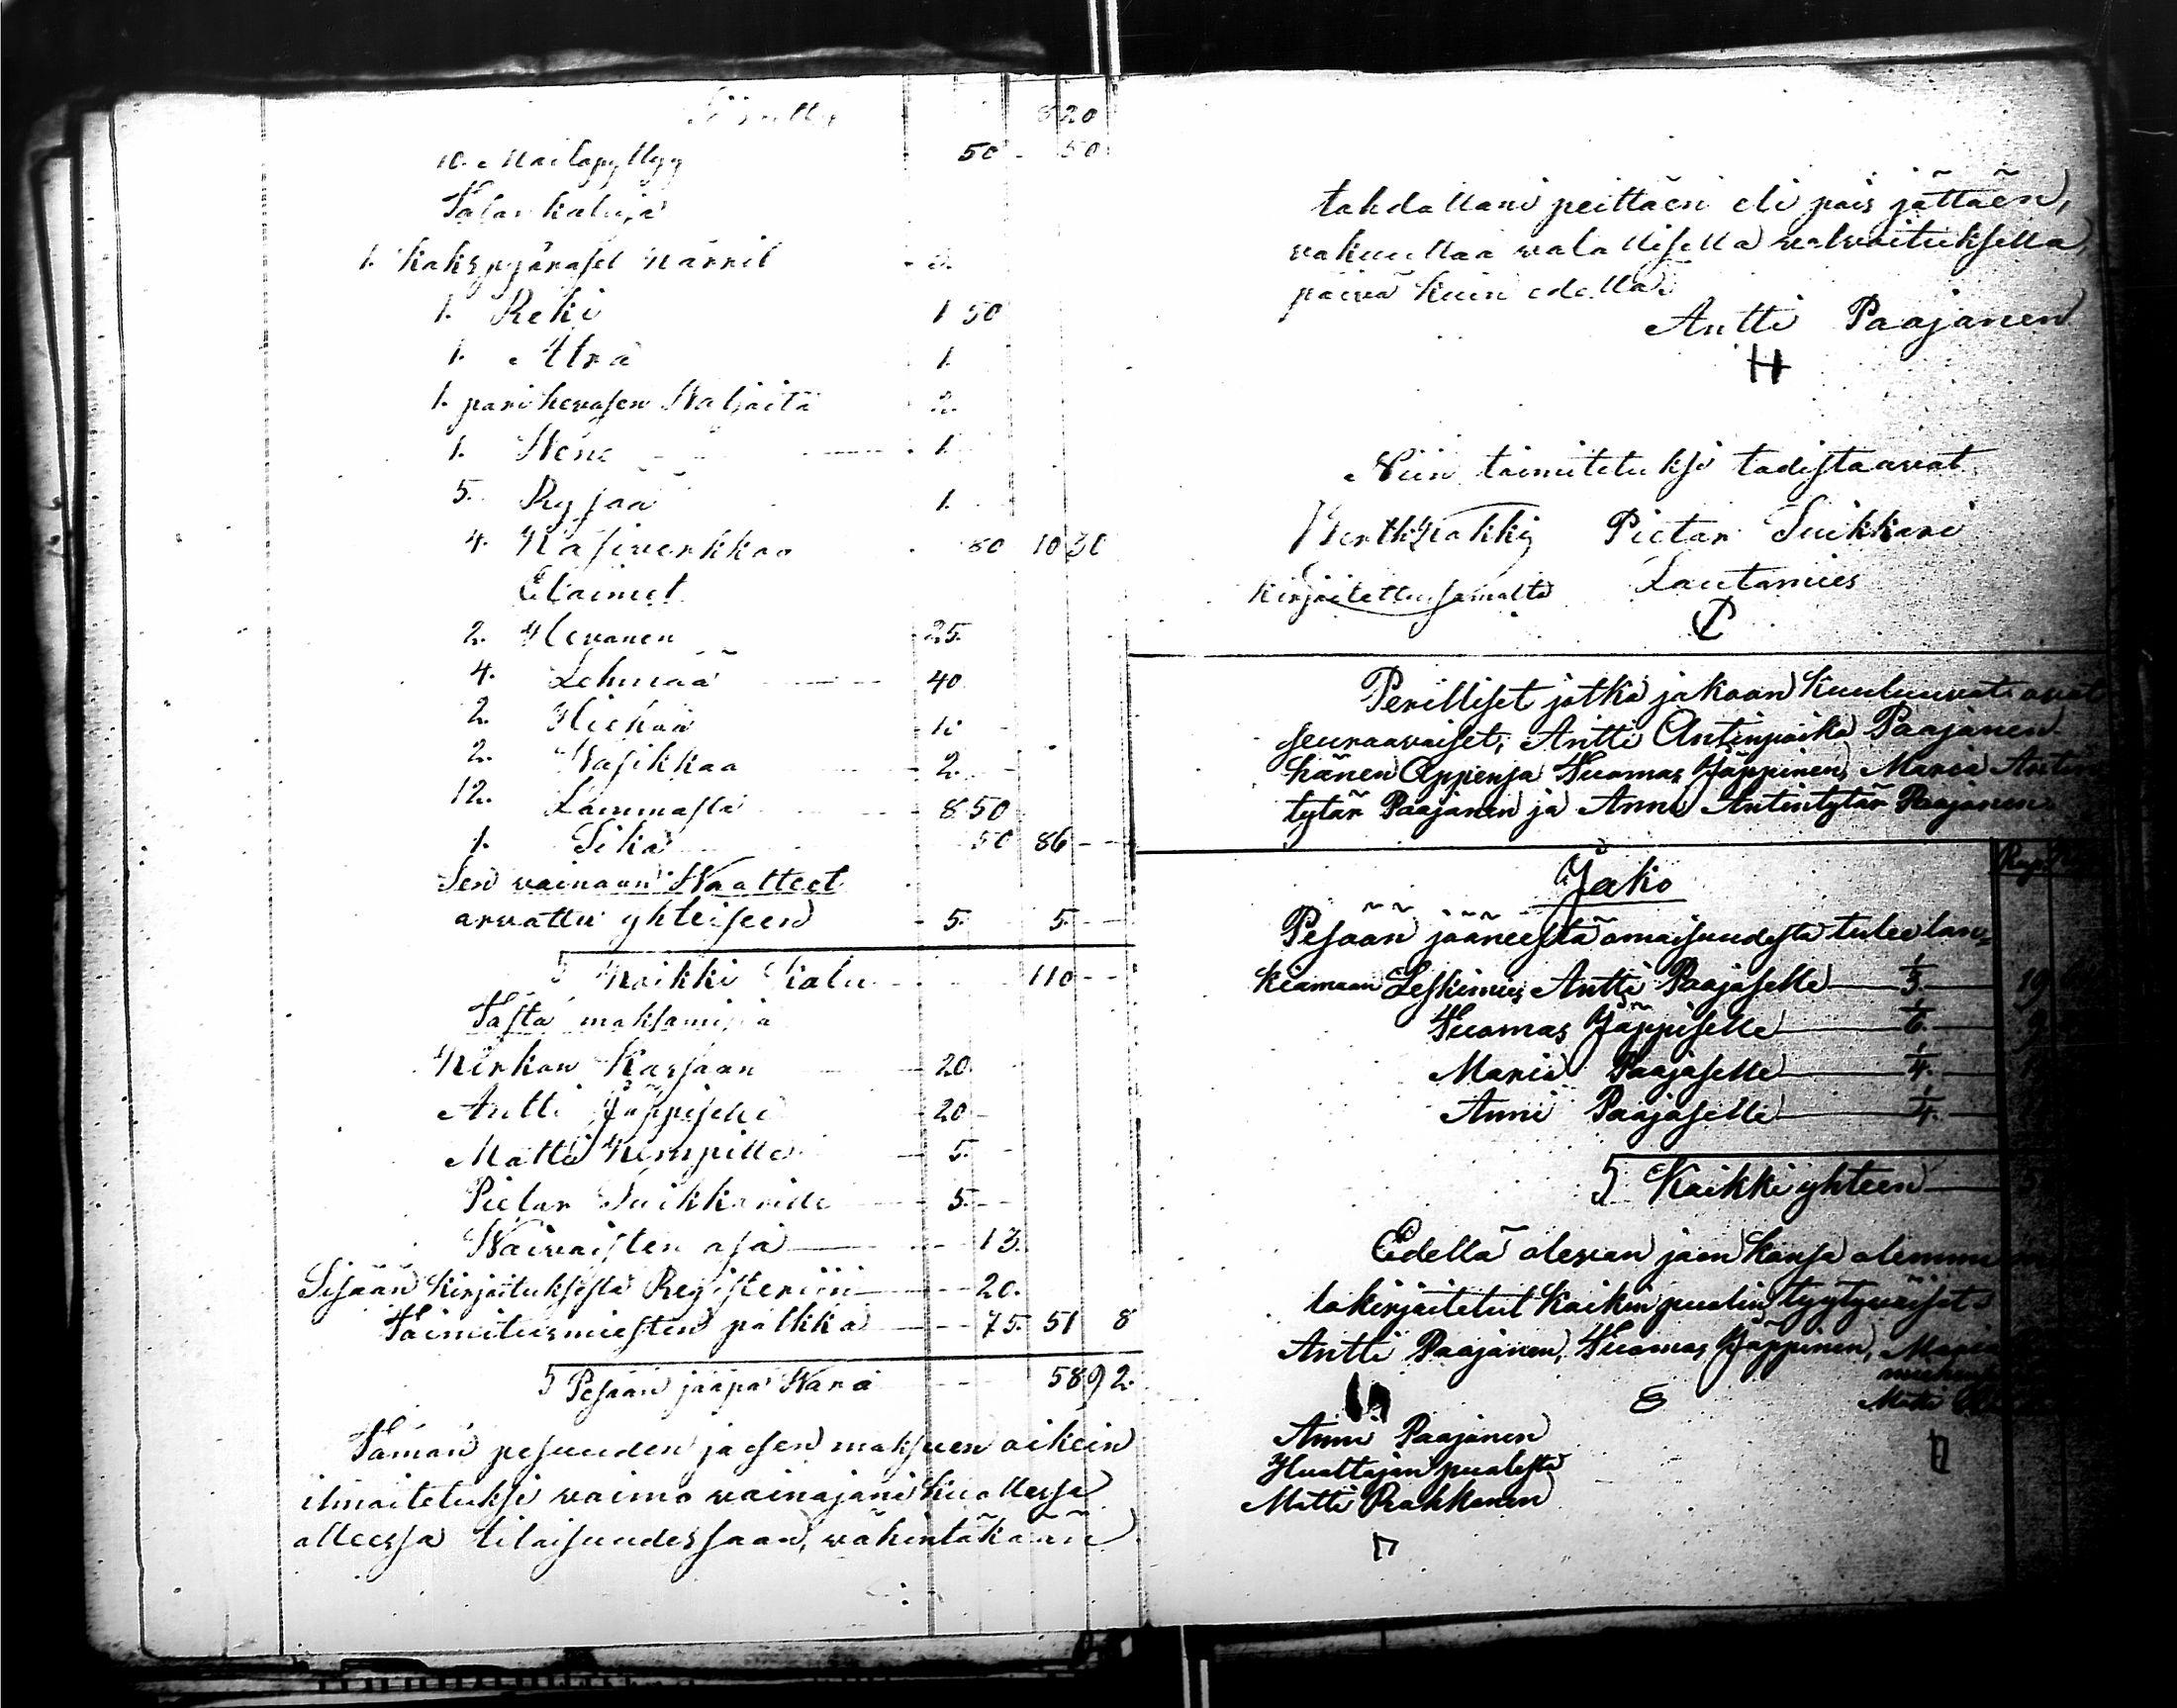 Siirettu 8 20
10. Maitopyttyy 50 - 50
Talonkaluja
1. Kakspyöräset kärrit - 3.
1. Reki 1 50
1. Atra 1.
1. pari hevosen Waljaita - 2.
1. Wene - 1.
5. Rysää 1.
4. Käsiverkkoa - 80 10 30
Eläimet
2. Hevonen - 25.
4. Lehmää 40
2. Hiehoa
2. Wasikkaa - 2.
12. Lammasta - 8 50
1. Sika 50 86 - -
Sen vainaan Waatteet
arvattu yhteiseen - 5. 5. - -
S Kaikki Kalu 110 - -
Tästä maksamisia
Kirkon Kassaan - 20.
Antti Jäppiselle - 20 -
Matti Kempille - 5. -
Pietar Suikkarille 5. -
Waivaisten osa - 13.
Sisään kirjoituksesta Registeriin - 20.
Toimitusmiesten palkka - 75. 51 8
S Pesään jääpä Wara - 58 92.
Tämän pesuuden ja sen maksuen oikein
ilmoitetuksi vaimo vainajani kuollessa
olleessa tilaisuudessaan, vähintäkään
tahdollani peittäen eli pois jättäen,
vakuuttaa valallisella velvoituksella,
päivä kuin edellä.
Antti Paajanen
H
Niin toimitetuksi todistaavat
Pietar Suikkari
Kirjoitettu samalta Lautamies
Perilliset jotka jakoon kuuluuvat ovat
seuraavaiset; Antti Antinpoika Paajanen
hänen Appensa Tuomas Jäppinen, Maria Antin
tytär Paajanen ja Anni Antintytär Paajanen
Jako
Pesään jääneestä omaisuudesta tulee lan=
keamaan Leskimies Antti Paajaselle 1/3 19
Tuomas Jäppiselle 1/6 9
Maria Paajaselle 1/4
Anni Paajaselle 1/4.
S Kaikki yhteen 5
Edellä olevan jaon kansa olemma
lakirjoitetut kaikin puolin tyytyväiset
Antti Paajanen, Tuomas Jäppinen, Maria
Matti
Anni Paajanen
Huoltajan puolesta
Matti Rakkonen